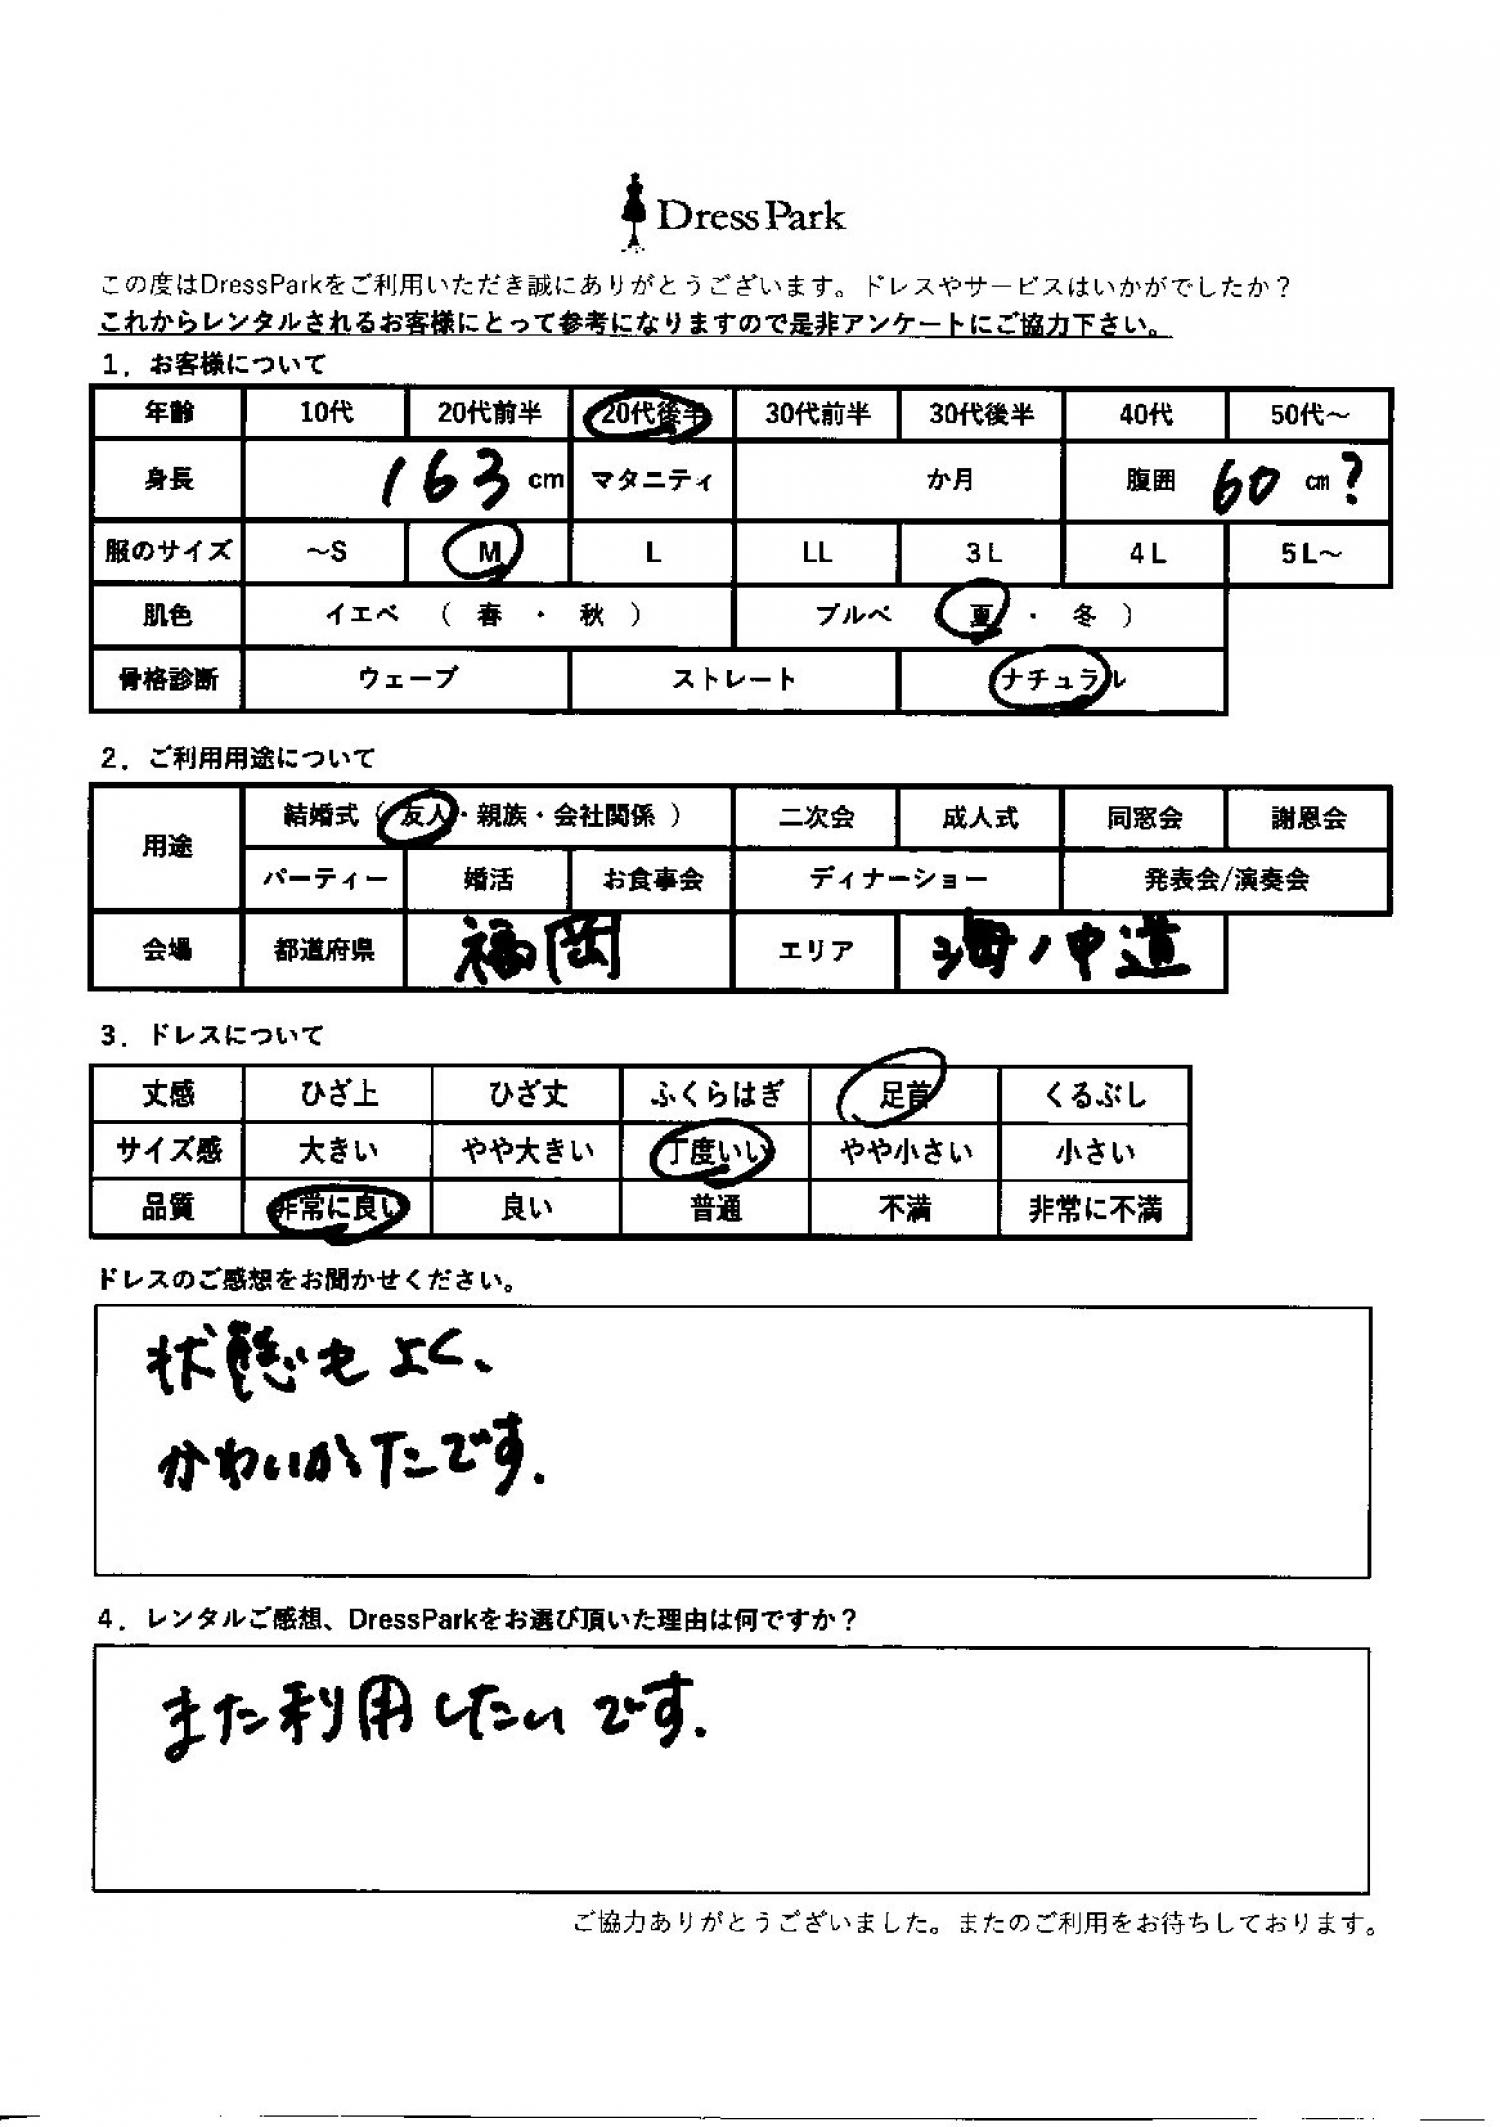 Dress Park
この度はDressParkをご利用いただき誠にありがとうございます。ドレスやサービスはいかがでしたか？
これからレンタルされるお客様にとって参考になりますので是非アンケートにご協力下さい。
1．お客様について
年齢 10代 20代前半 20代後半 30代前半 30代後半 40代 50代～
身長 163 cm マタニティ か月 腹囲 60 cm ?
服のサイズ ～S M L LL 3L 4L 5L～
肌色 イエベ （ 春 ・ 秋 ） ブルベ 夏 ・ 冬 ）
骨格診断 ウェーブ ストレート ナチュラル
2．ご利用用途について
用途 結婚式（ 友人・親族・会社関係 ） 二次会 成人式 同窓会 謝恩会
パーティー 婚活 お食事会 ディナーショー 発表会/演奏会
会場 都道府県 福岡 エリア 海ノ中道
3．ドレスについて
丈感 ひざ上 ひざ丈 ふくらはぎ 足首 くるぶし
サイズ感 大きい やや大きい 丁度いい やや小さい 小さい
品質 非常に良い 良い 普通 不満 非常に不満
ドレスのご感想をお聞かせください。
状態もよく、
かわいかたです.
4．レンタルご感想、DressParkをお選び頂いた理由は何ですか？
また利用したいです.
ご協力ありがとうございました。またのご利用をお待ちしております。